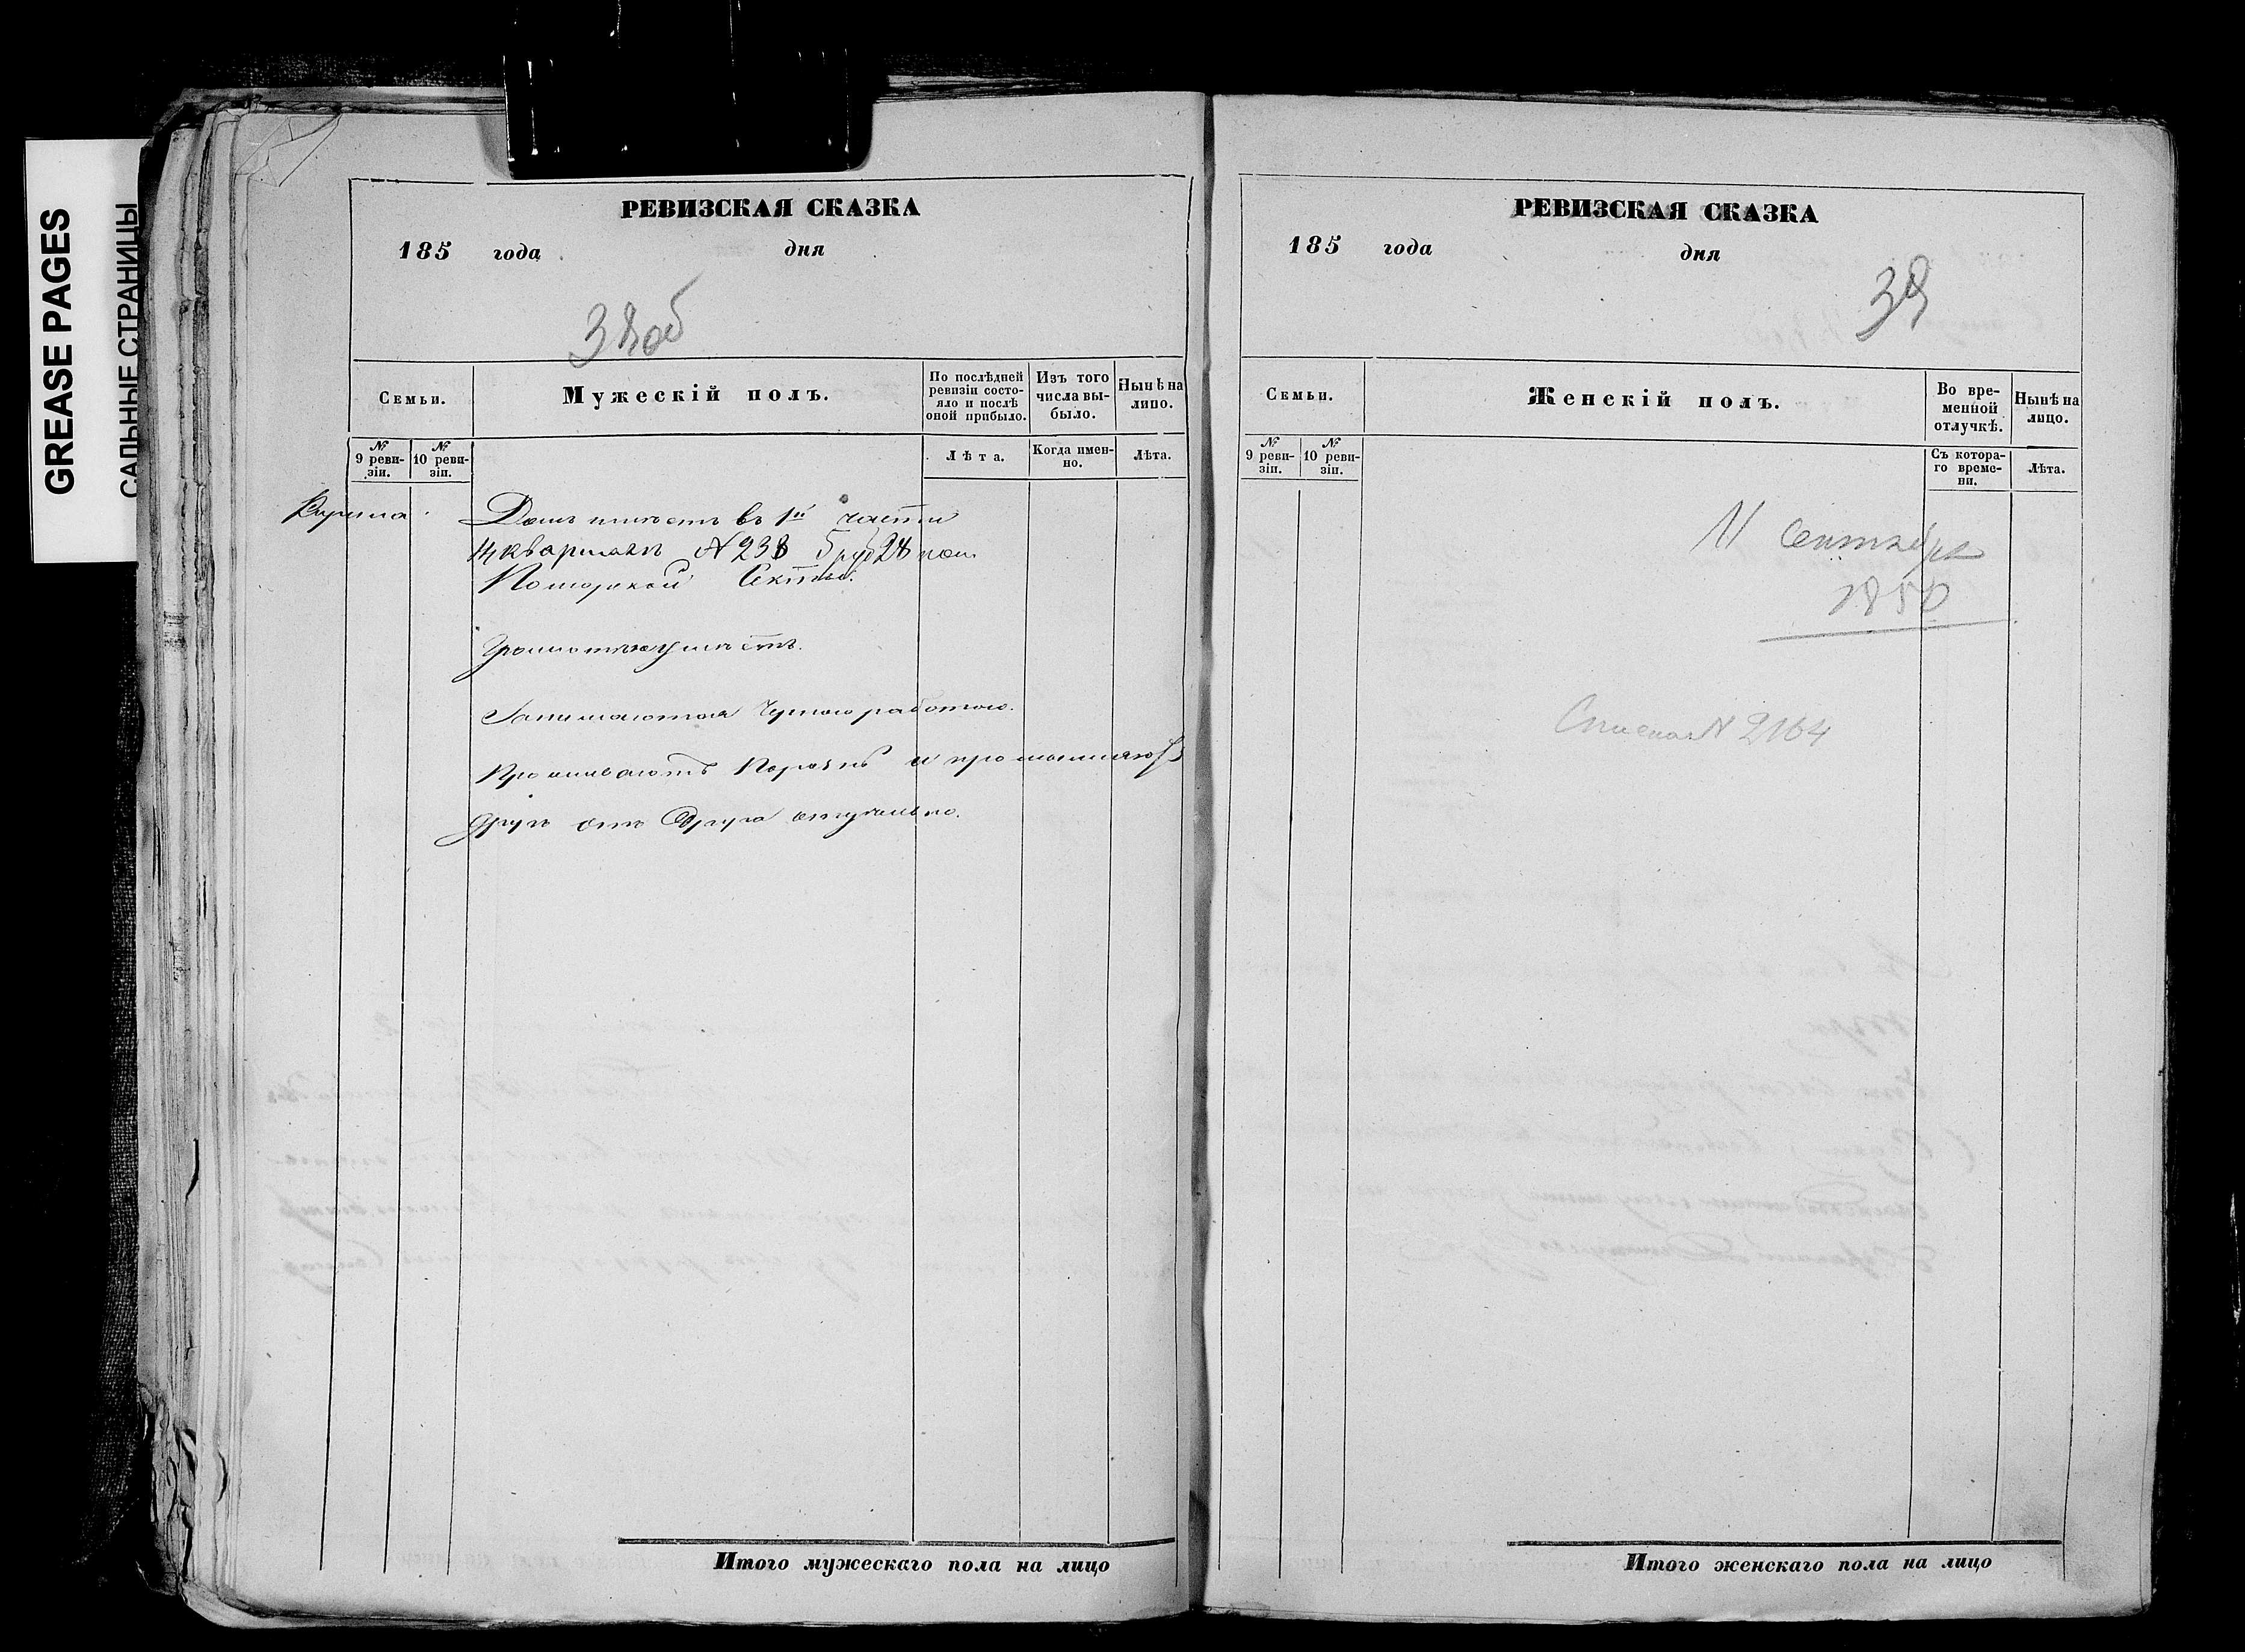 GREASE PAGES
САЛЬНЫЕ СТРАНИЦЫ
РЕВИЗСКАЯ СКАЗКА
185 года дня
38об
Семьи.
Мужескій полъ.
По послѣдней ревизіи состояло и послѣ оной прибыло.
Изъ того числа выбыло.
Нынѣ на лицо.
№ 9 ревизіи.
№ 10 ревизіи.
Лѣта.
Когда именно.
Лѣта.
Домъ имѣетъ въ 1й части
4 квартала N 238 5 руб 28 коп
Поморской Секты.
Грамотѣ умѣетъ.
Занимаются Черною работою.
Проживаютъ и промышляютъ
другъ отъ Друга отдѣльно.
Итого мужескаго пола на лицо
РЕВИЗСКАЯ СКАЗКА
185 года дня
39
Семьи.
Женскій полъ.
Во временной отлучкѣ.
Нынѣ на лицо.
№ 9 ревизіи.
№ 10 ревизіи.
Съ котораго времени.
Лѣта.
11 Сентября
1850
N 2164
Итого женскаго пола на лицо